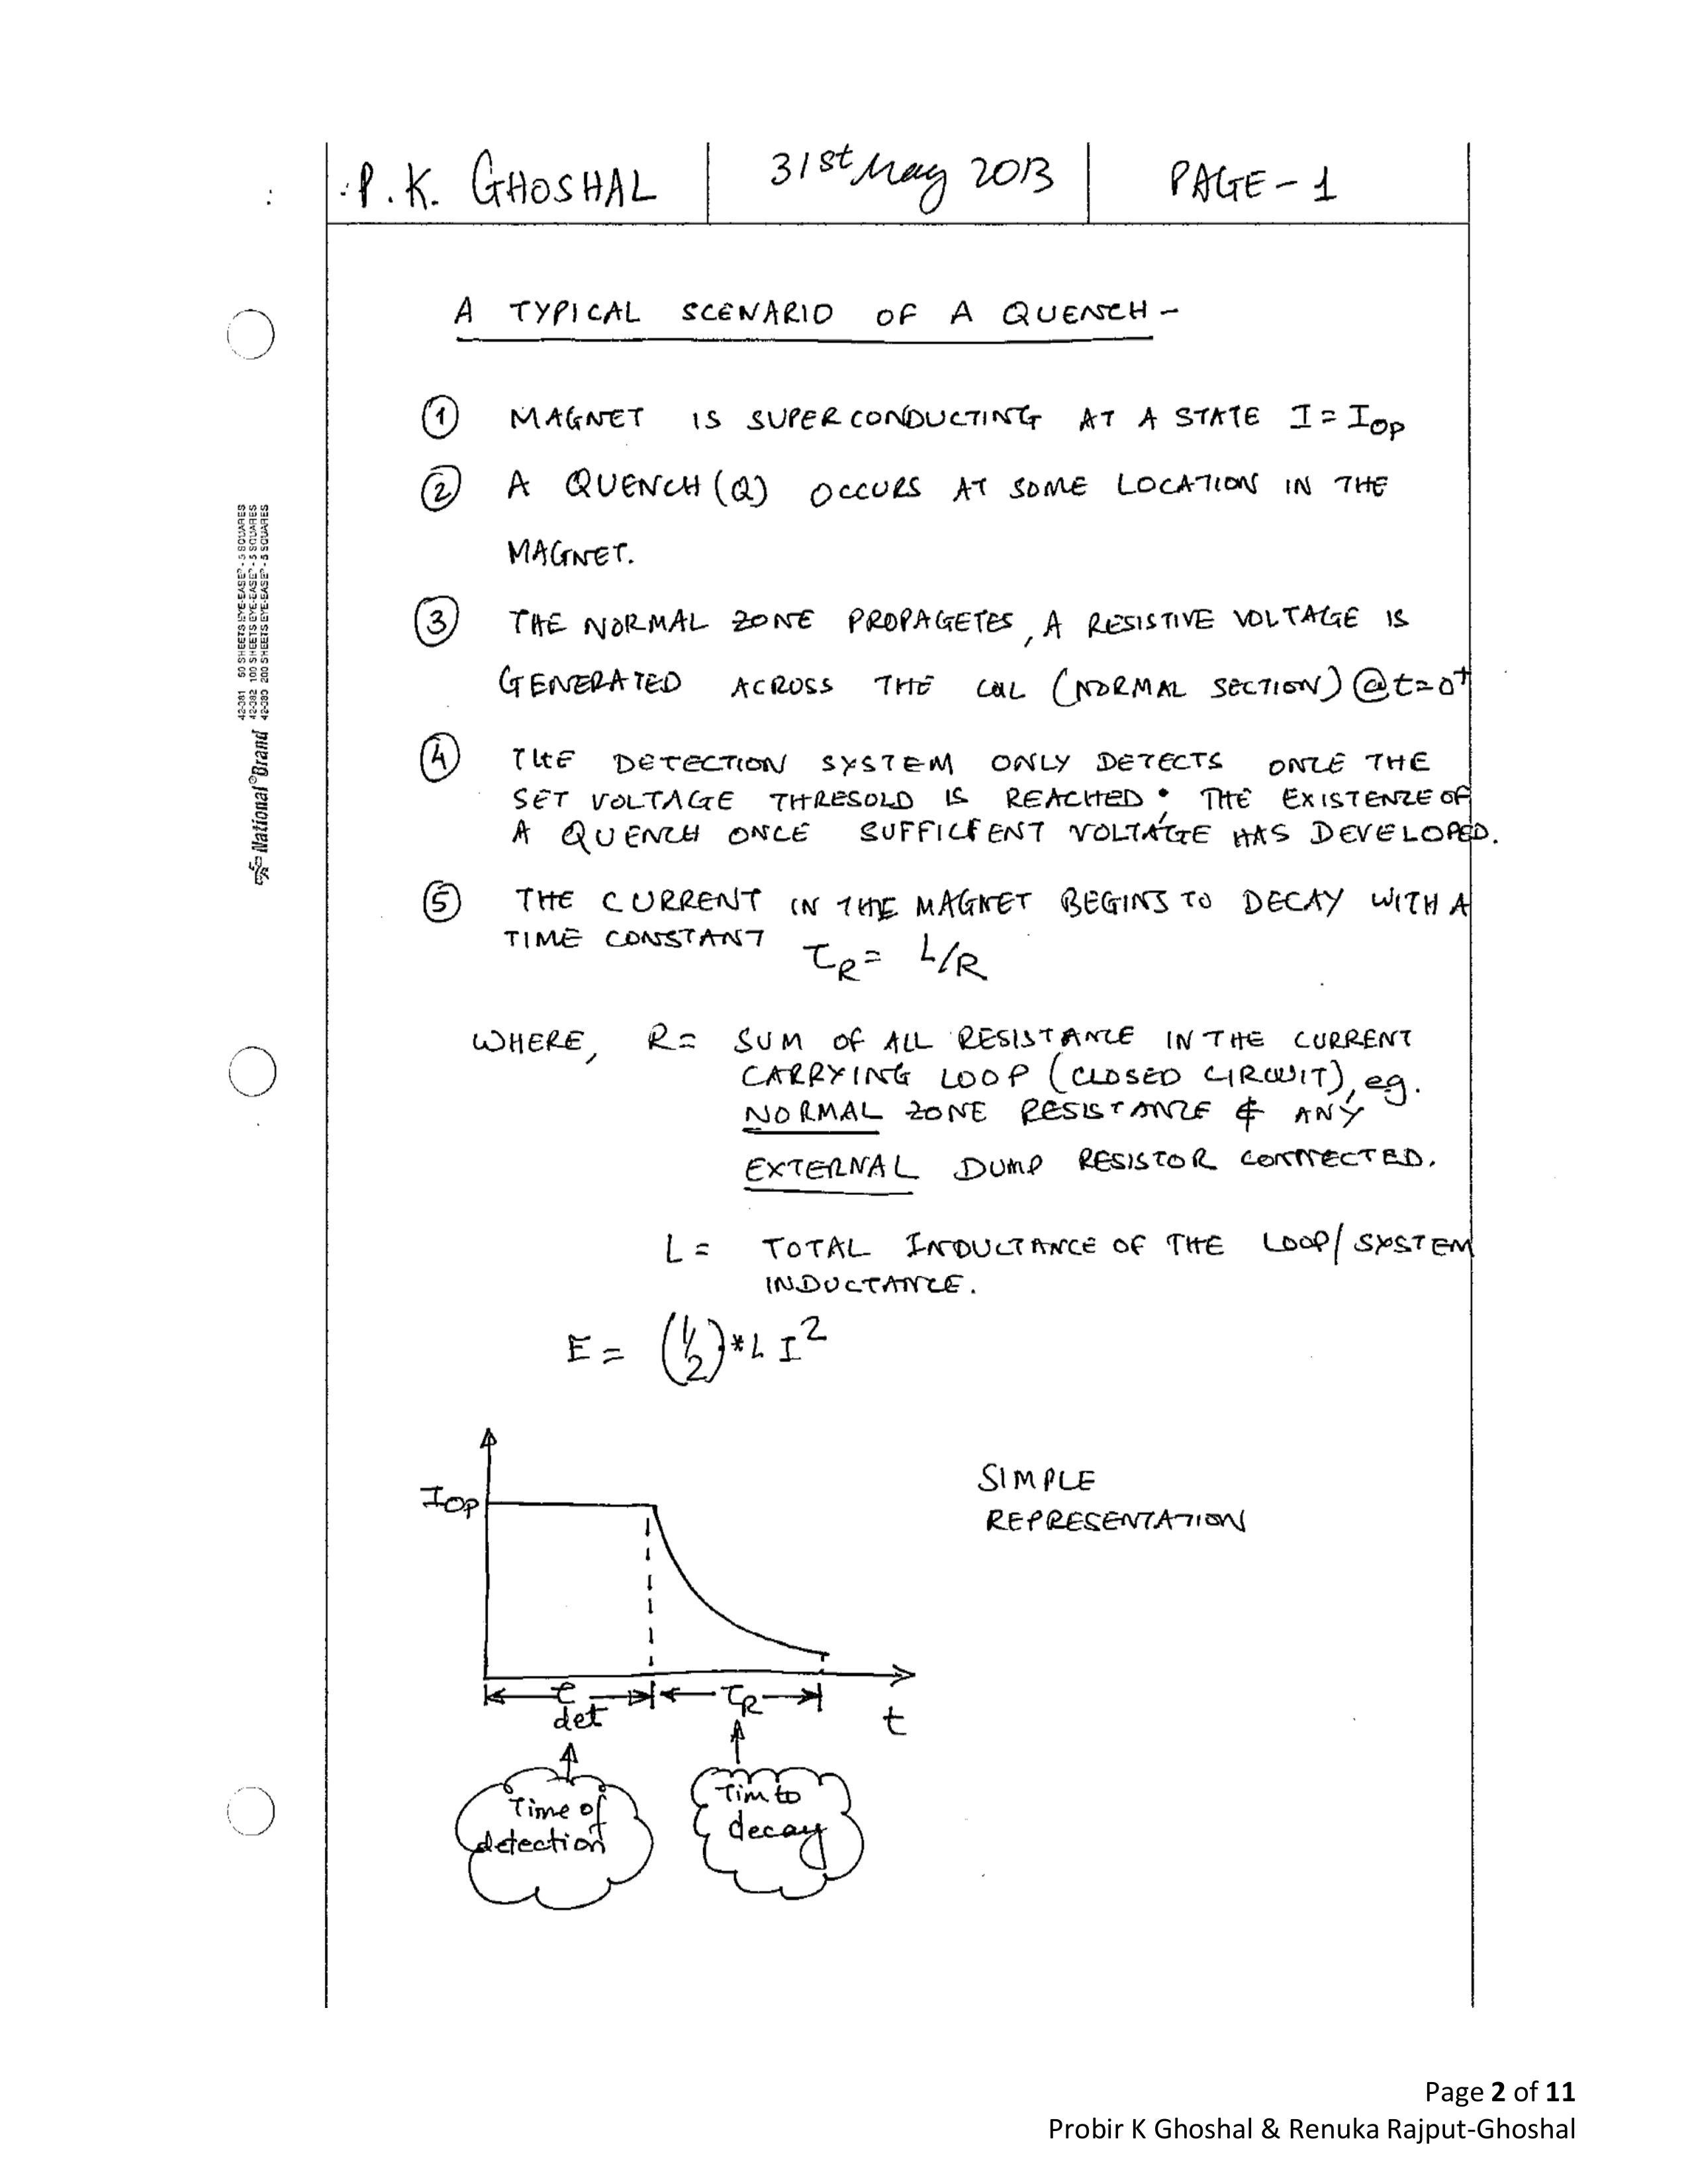 P. K. GHOSHAL
31st May 2013
PAGE - 1
A TYPICAL SCENARIO OF A QUENCH -
① MAGNET IS SUPERCONDUCTING AT A STATE I = I_OP
② A QUENCH (Q) OCCURS AT SOME LOCATION IN THE
MAGNET.
③ THE NORMAL ZONE PROPAGETES, A RESISTIVE VOLTAGE IS
GENERATED ACROSS THE COIL (NORMAL SECTION) @ t=0⁺
④ THE DETECTION SYSTEM ONLY DETECTS ONCE THE
SET VOLTAGE THRESOLD IS REACHED; THE EXISTENCE OF
A QUENCH ONCE SUFFICIENT VOLTAGE HAS DEVELOPED.
⑤ THE CURRENT IN THE MAGNET BEGINS TO DECAY WITH A
TIME CONSTANT τ_R = L/R
WHERE, R = SUM OF ALL RESISTANCE IN THE CURRENT
CARRYING LOOP (CLOSED CIRCUIT), eg.
NORMAL ZONE RESISTANCE & ANY
EXTERNAL DUMP RESISTOR CONNECTED.
L = TOTAL INDUCTANCE OF THE LOOP/SYSTEM
INDUCTANCE.
E = (1/2) * L I²
I_OP
SIMPLE
REPRESENTATION
τ
det
τ_R
t
Time of
detection
Tim to
decay
National® Brand
42-381 50 SHEETS EYE-EASE® - 5 SQUARES
42-382 100 SHEETS EYE-EASE® - 5 SQUARES
42-389 200 SHEETS EYE-EASE® - 5 SQUARES
Page 2 of 11
Probir K Ghoshal & Renuka Rajput-Ghoshal